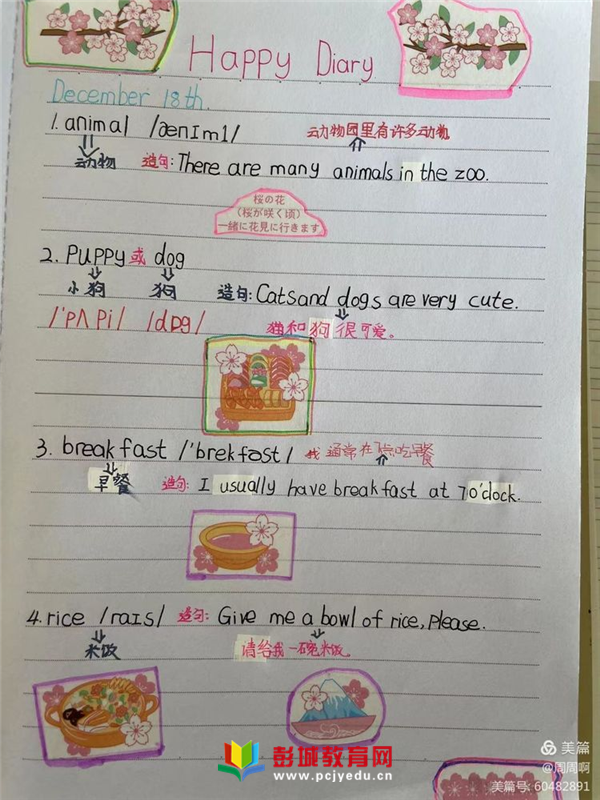 Happy Diary
December 18th.
1. animal /ænɪml/ 动物园里有许多动物
动物 造句: There are many animals in the zoo.
桜の花
(桜が咲く頃)
一緒に花見に行きます
2. puppy 或 dog
小狗 狗 造句: Catsand dogs are very cute.
/'pʌpi/ /dɒg/ 猫和狗很可爱。
3. breakfast /'brekfəst/ 我通常在7点吃早餐
早餐 造句: I usually have breakfast at 7o'clock.
4. rice /raɪs/ 造句: Give me a bowl of rice, please.
米饭 请给我一碗米饭。
彭城教育网
www.pcjyedu.cn
美篇
@周周啊
美篇号: 60482891